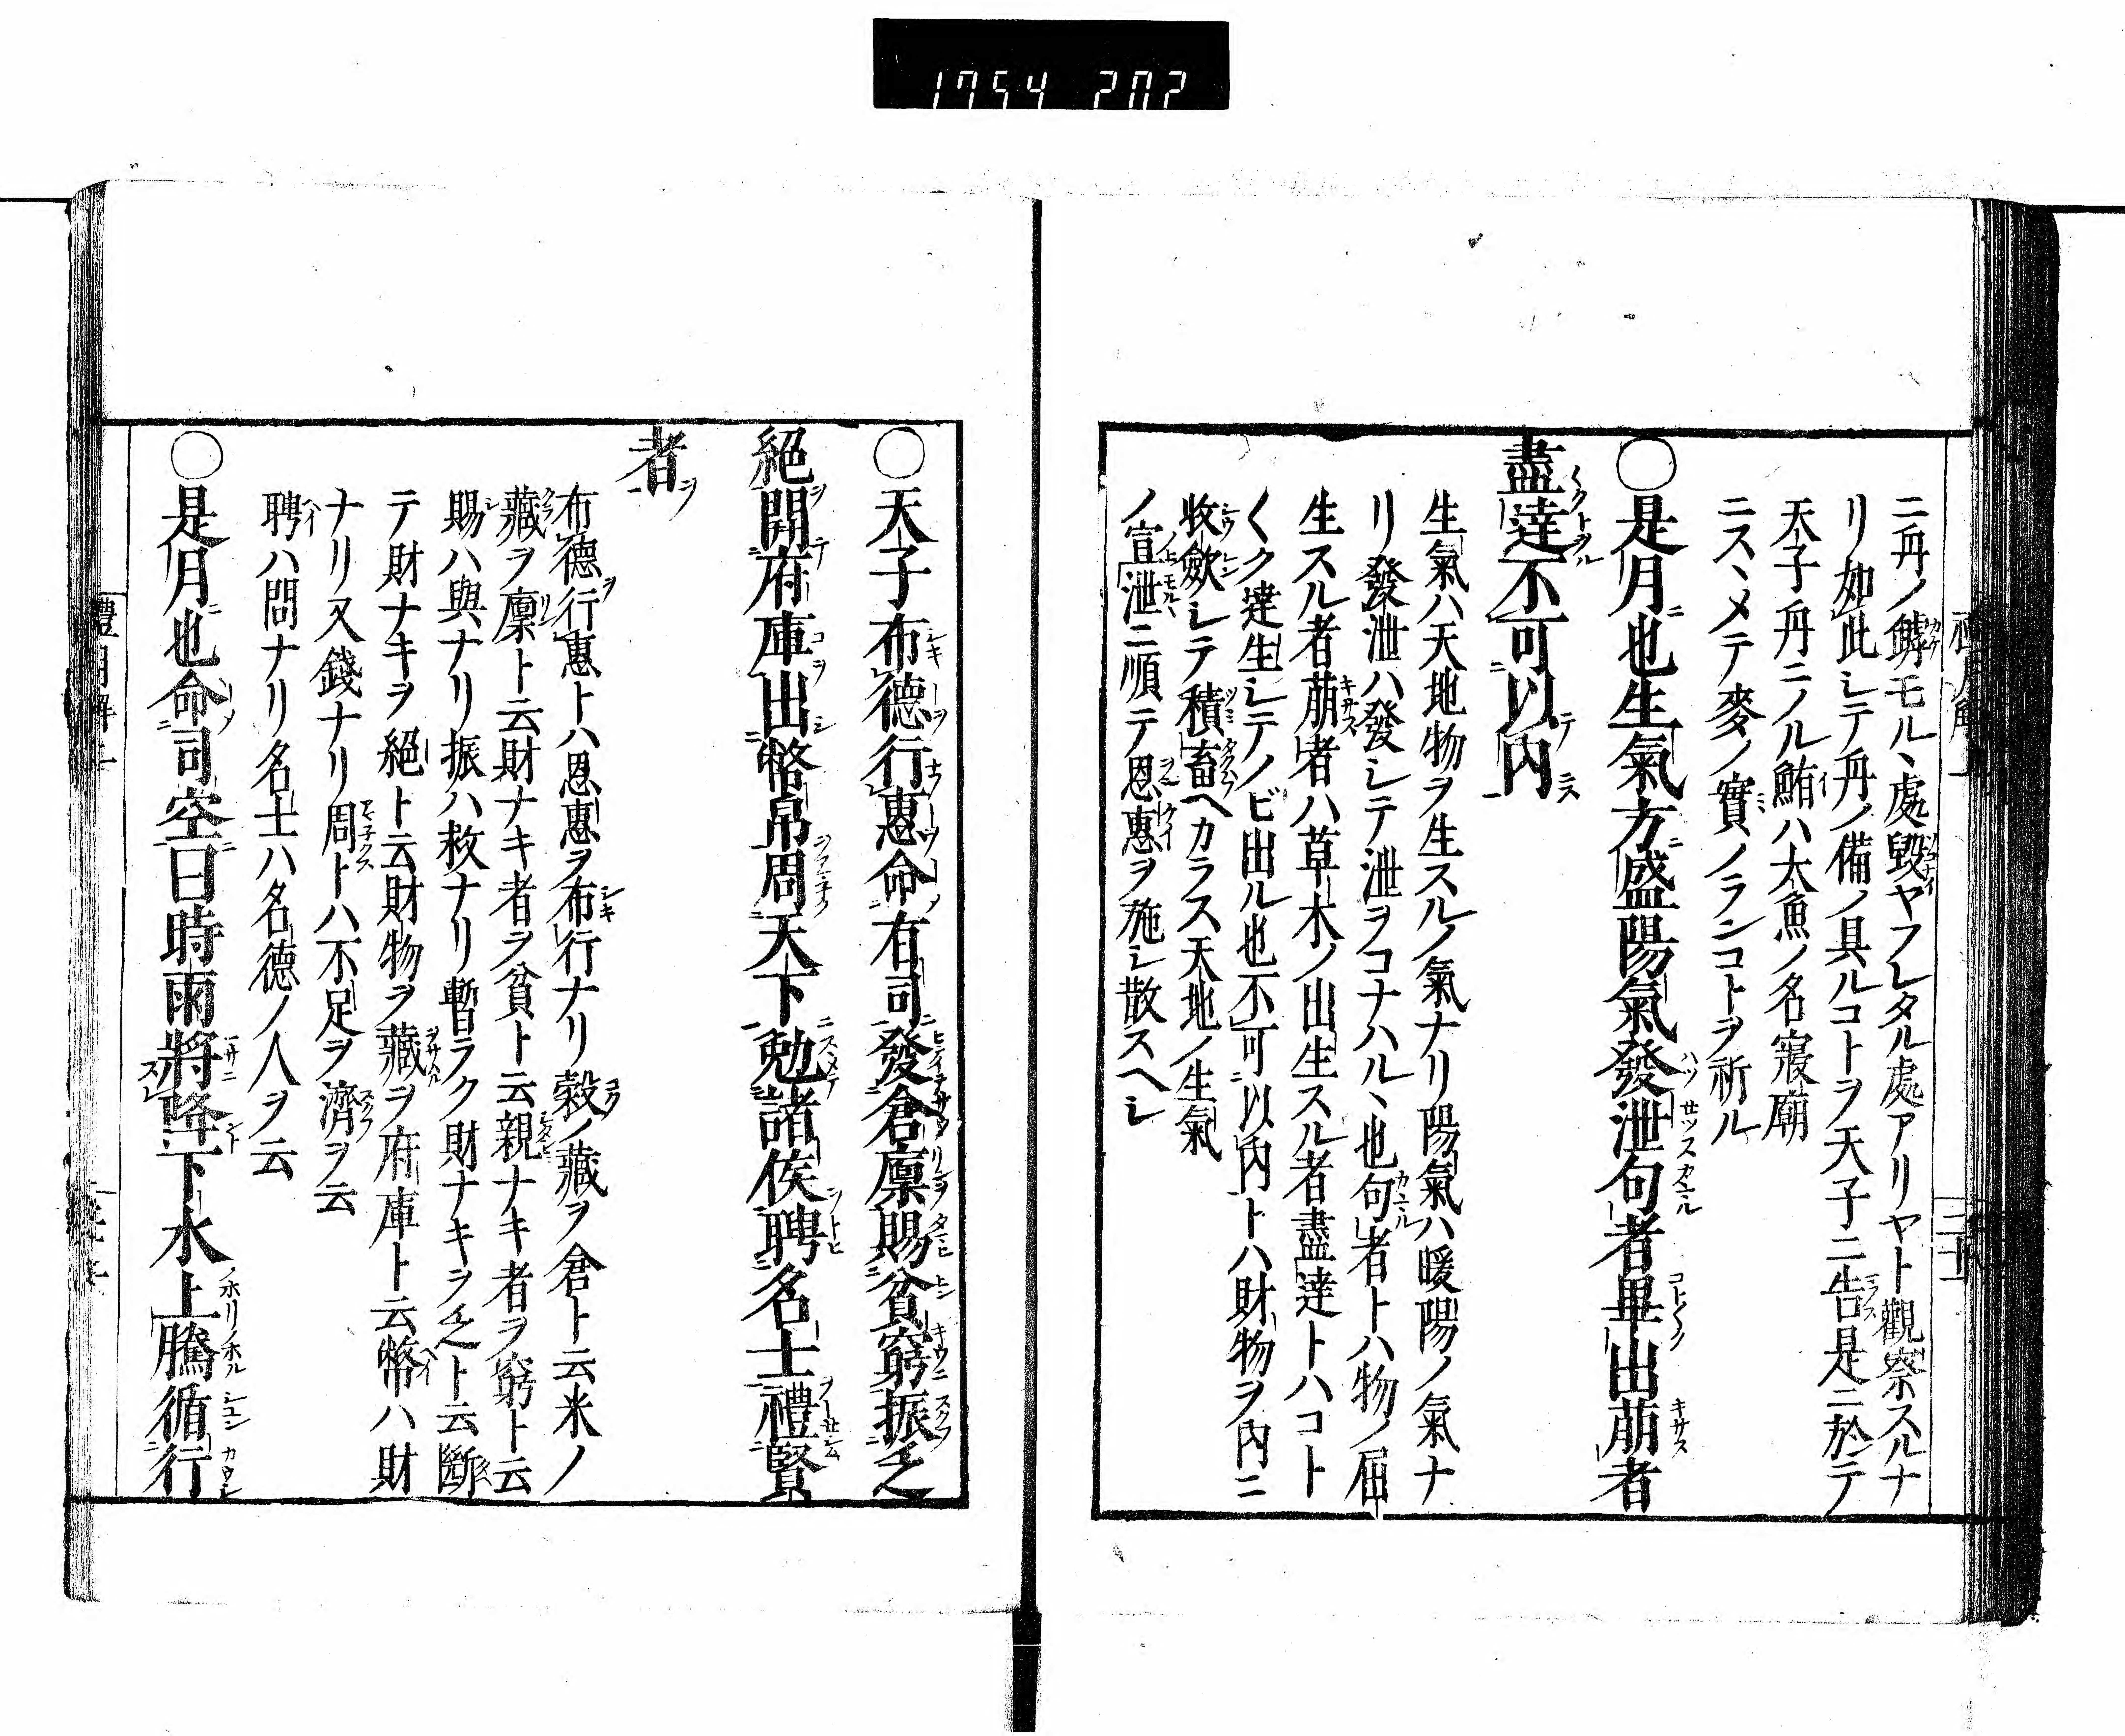 1754 202
ニ丹ノ鱗モル、處毀ヤフレタル處アリヤト觀察スルナ
リ如此シテ丹ノ備ノ具ルコトヲ天子ニ告是ニ於テ
天子丹ニノル鮪ハ大魚ノ名寢廟
ニスヽメテ麥ノ實ノランコトヲ祈ル
○是月也生氣方盛陽氣發泄句者畢出萠者
盡達不可以內
生氣ハ天地物ヲ生スルノ氣ナリ陽氣ハ暖陽ノ氣ナ
リ發泄ハ發シテ泄ヲコナハル、也句者トハ物ノ屈
生スル者萠者ハ草木ノ出生スル者盡達トハコト
〱ク達生シテノビ出ル也不可以內トハ財物ヲ內ニ
收斂シテ積畜ヘカラス天地ノ生氣
ノ宣泄ニ順テ恩惠ヲ施シ散スヘシ
○天子布德行惠命有司發倉廩賜貧窮振乏
絕開府庫出幣帛周天下勉諸侯聘名士禮賢
者
布德行惠トハ恩惠ヲ布行ナリ穀ノ藏ヲ倉ト云米ノ
藏ヲ廩ト云財ナキ者ヲ貧ト云親ナキ者ヲ窮ト云
賜ハ與ナリ振ハ救ナリ暫ラク財ナキヲ乏ト云斷
テ財ナキヲ絕ト云財物ヲ藏ヲ府庫ト云幣ハ財
ナリ又錢ナリ周トハ不足ヲ濟ヲ云
聘ハ問ナリ名士ハ名德ノ人ヲ云
○是月也命司空曰時雨將降下水上騰循行